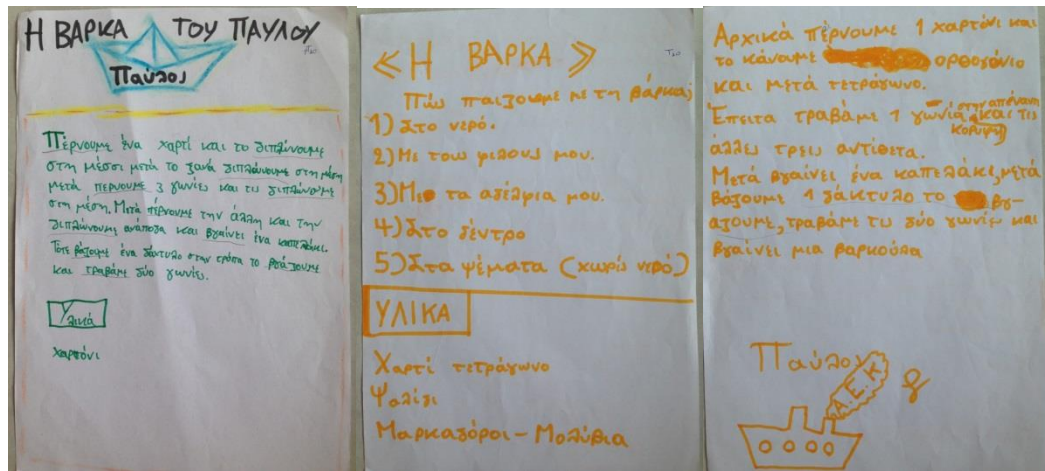 Η ΒΑΡΚΑ ΤΟΥ ΠΑΥΛΟΥ
Παύλος
Πέρνουμε ένα χαρτί και το διπλώνουμε
στη μέσσι μετά το ξανά διπλώνουμε στη μέση
μετά περνουμε 3 γωνίες και τις διπλώνουμε
στη μέση. Μετά πέρνουμε την άλλη και την
διπλώνουμε ανάποδα και βγαίνει ένα καπελάκι.
Τότε βάζουμε ένα δάκτυλο στην τρύπα το βγάζουμε
και τραβάμε δύο γωνίες.
Υλικά
χαρτόνι
«Η ΒΑΡΚΑ»
Πώς παίζουμε με τη βάρκα;
1) Στο νερό.
2) Με τους φιλους μου.
3) Με τα αδέλφια μου.
4) Στο δέντρο
5) Στα ψέματα (χωρίς νερό)
ΥΛΙΚΑ
Χαρτί τετράγωνο
Ψαλίδι
Μαρκαδόροι - Μολύβια
Αρχικά πέρνουμε 1 χαρτόνι και
το κάνουμε ορθογώνιο
και μετά τετράγωνο.
Έπειτα τραβάμε 1 γωνία στην απέναντι
κορυφή και τις
άλλες τρεις αντίθετα.
Μετά βγαίνει ένα καπελάκι, μετά
βάζουμε 1 δάκτυλο το βγ-
άζουμε, τραβάμε τις δύο γωνίες και
βγαίνει μια βαρκούλα
Παύλος
ΑΕΚ